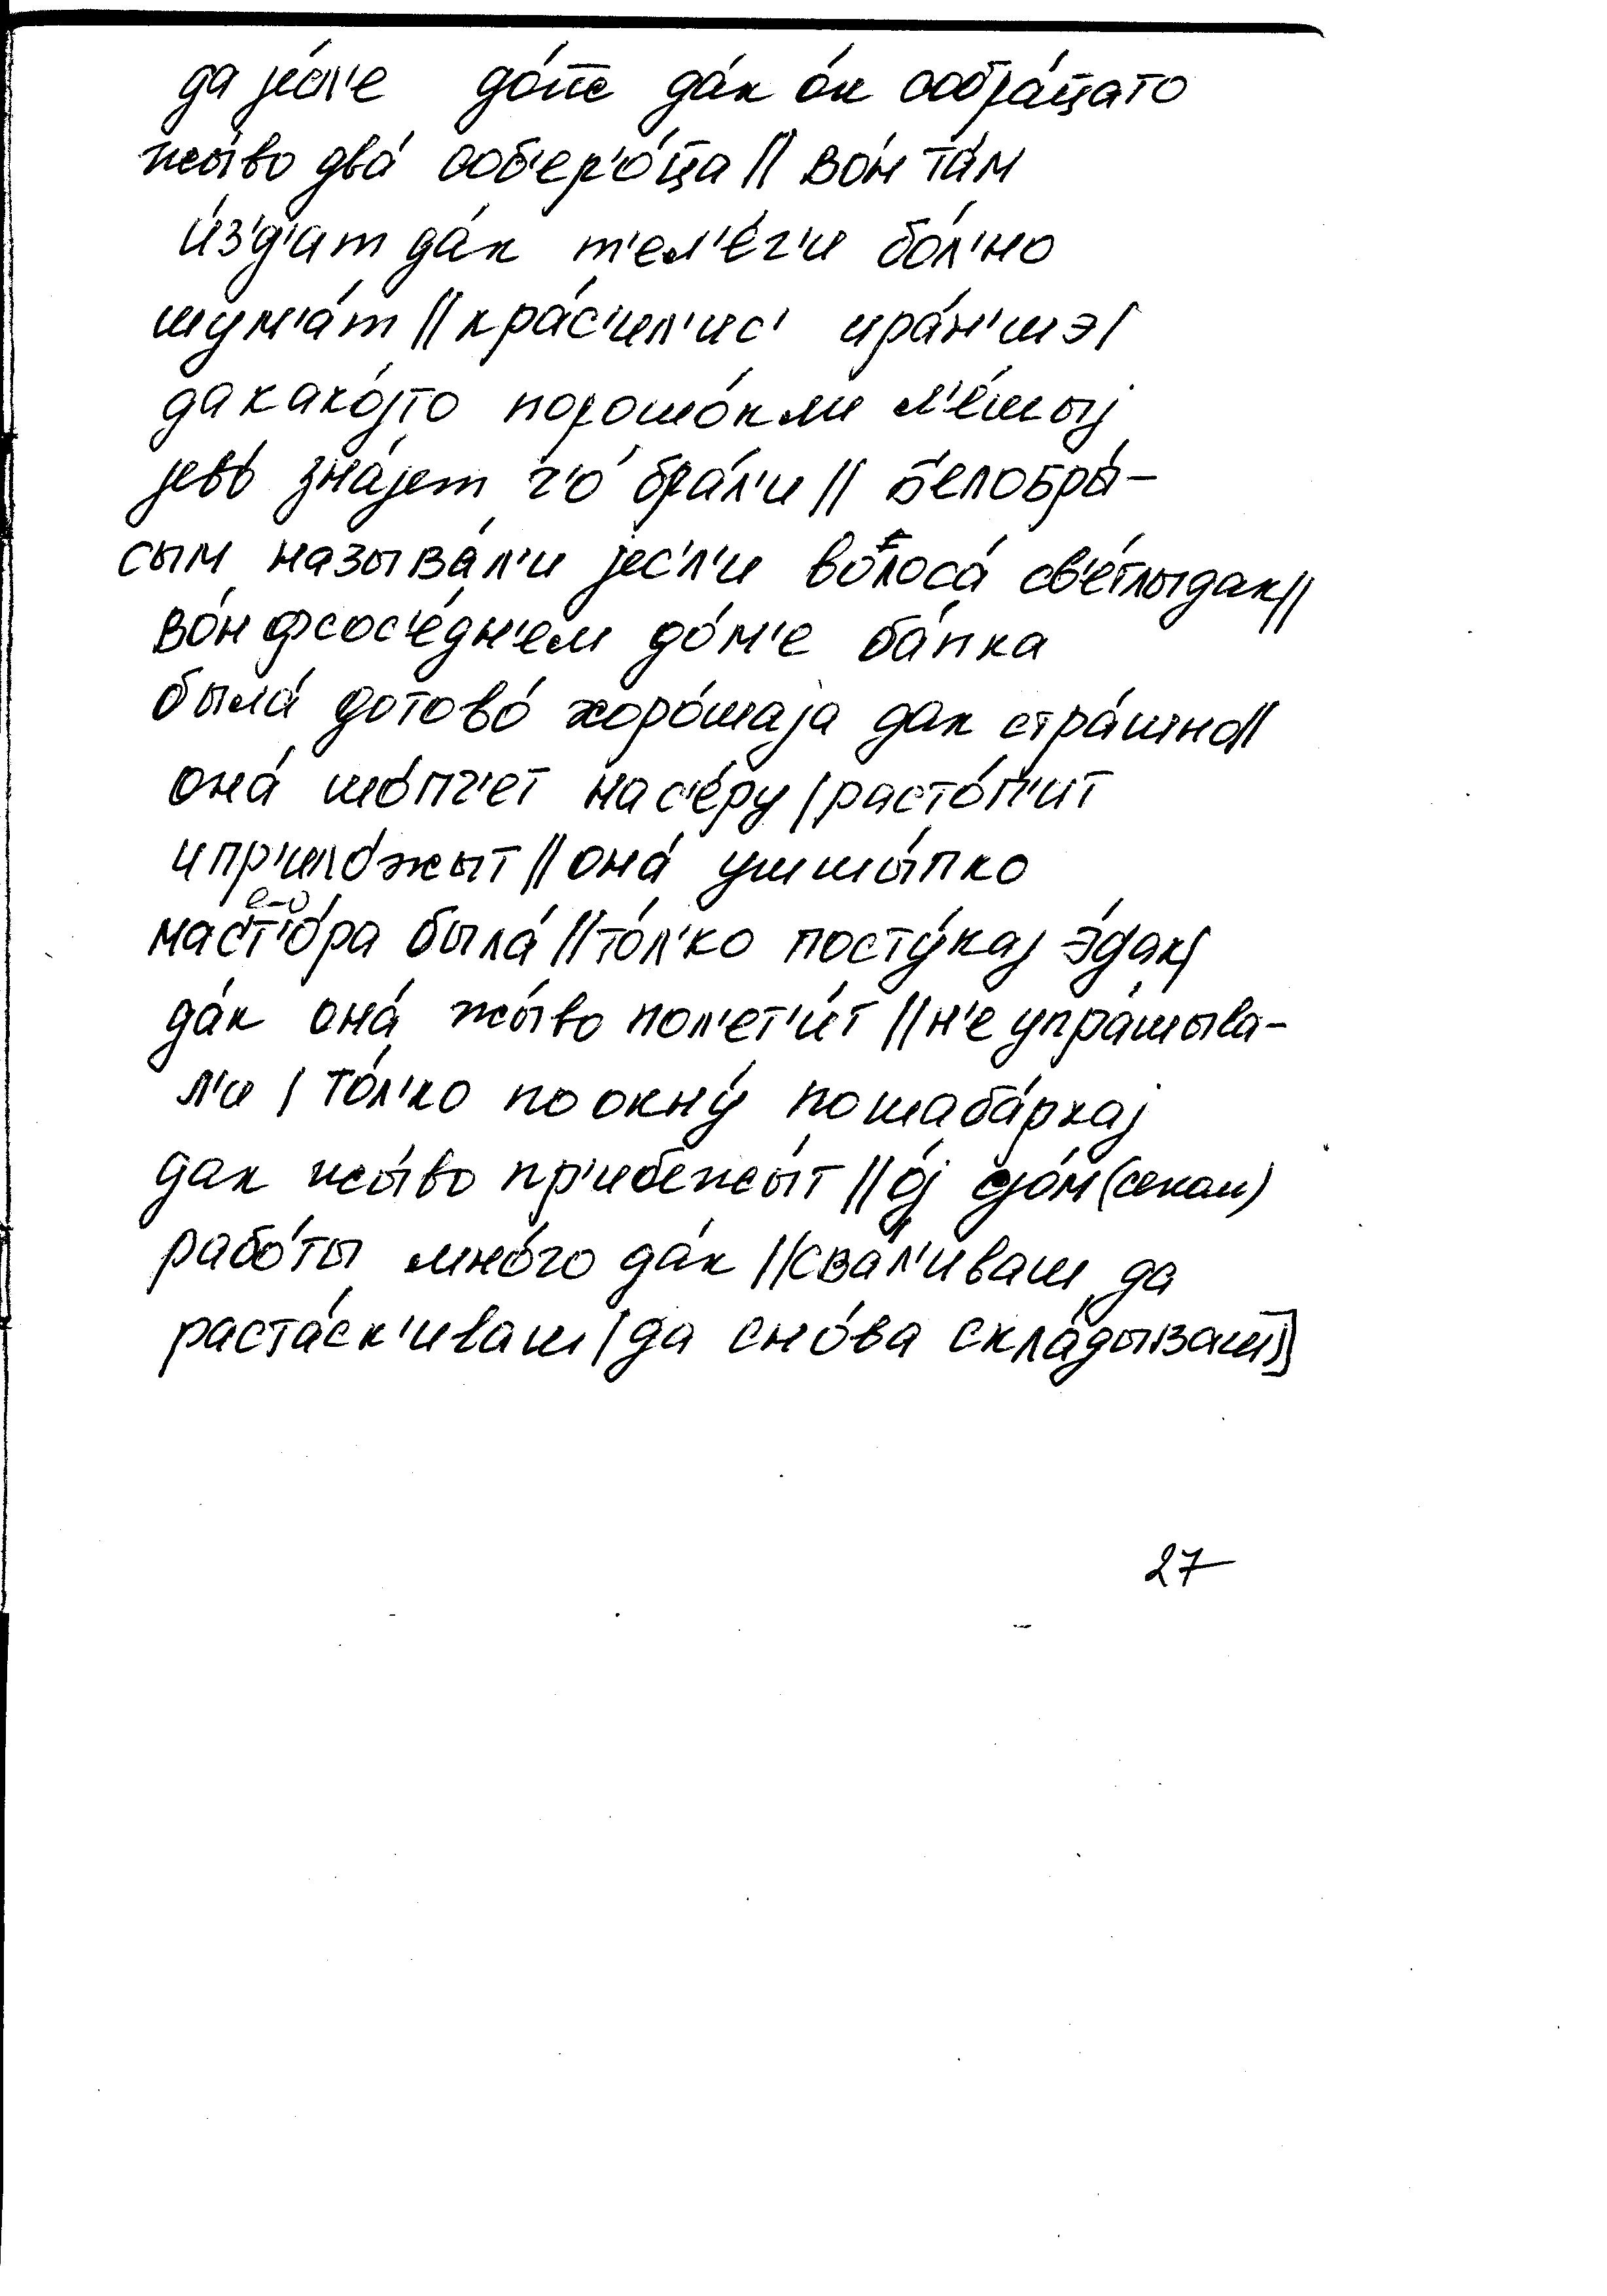 да јéсл'е до́тс да́к о́к собра́ц̄ато
жы́во два́ соб'ер'о́ц̄а || во́н та́м
и́з'д'ат да́к т'ел'е́г'и бо́л'но
шум'а́т || кра́с'ил'ис' ира́н'шэ |
да како́јто порошо́к ли л'е́шыј
јево́ зна́јет ч'о́ бра́л'и || б'елобры́-
сым называ́л'и јес'л'и во́лоса́ св'е́тлыдак ||
во́н фсос'е́дн'ем до́м'е ба́пка
была́ дотово́ хоро́шаја дак стра́шно ||
она́ шо́пч'ет нас'е́ру | расто́п'ит
ипр'ило́жыт || она́ ушшы́пко
маст'о́ра была́ || то́л'ко посту́кај э́дак |
е-о
да́к она́ жы́во пол'ет'и́т || н'е упра́шыва-
л'и | то́л'ко по окну́ пошаба́ркај
дак жы́во пр'ибежы́т || о́ј с јо́м (сеном)
рабо́ты мно́го да́к || сва́л'иваш да
раста́ск'иваш | да сно́ва скла́дываш ||]
27